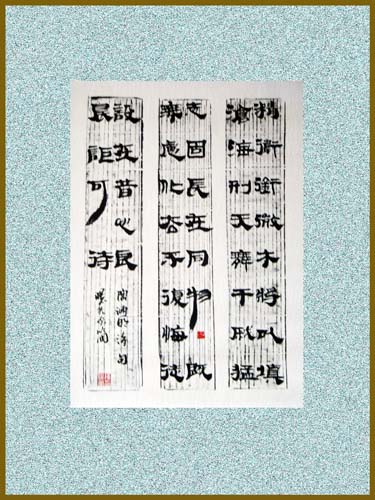 精衛銜微木將以填
滄海刑天舞干戚猛
志固在同物既
無慮化去不復悔徒
設在昔心良
辰詎可待
陶淵明詩句